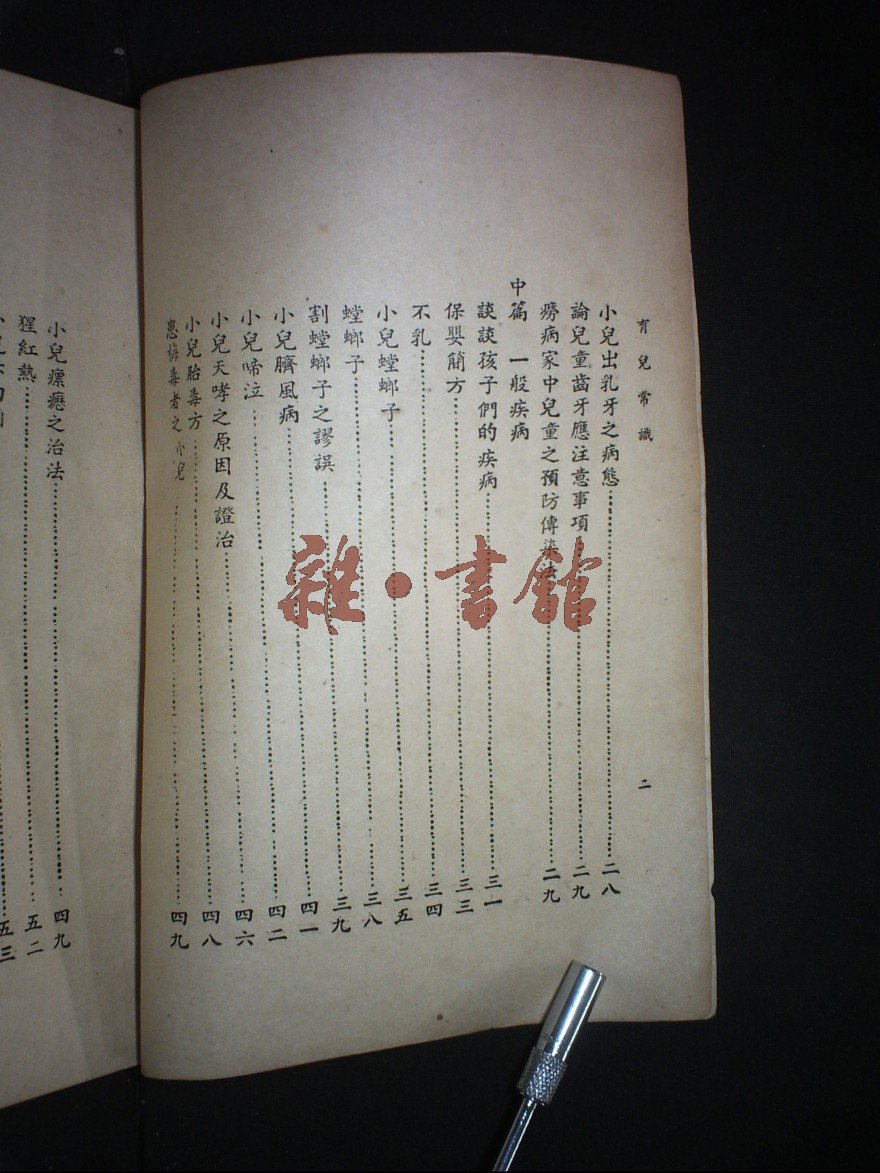 育兒常識
二
小兒出乳牙之病態……二八
論兒童齒牙應注意事項……二九
癆病家中兒童之預防傳染……二九
中篇 一般疾病
談談孩子們的疾病……三一
保嬰簡方……三三
不乳……三四
小兒螳螂子……三五
螳螂子……三八
割螳螂子之謬誤……三九
小兒臍風病……四一
小兒啼泣……四二
小兒天哮之原因及證治……四六
小兒胎毒方……四八
患梅毒者之小兒……四九
小兒瘰癧之治法……四九
猩紅熱……五二
五三
雜·書館